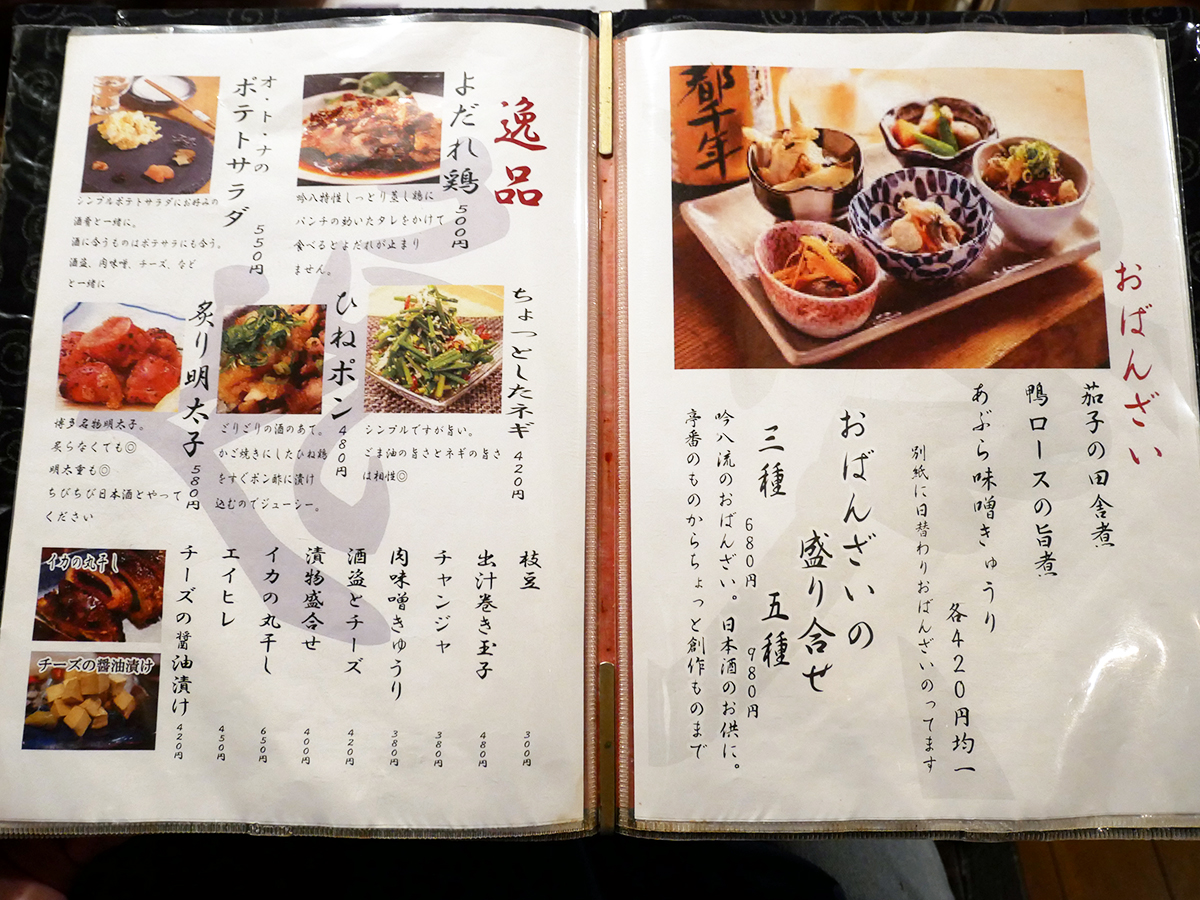 おばんざい
茄子の田舎煮
鴨ロースの旨煮
あぶら味噌きゅうり
各420円均一
別紙に日替わりおばんざいのってます
おばんざいの
盛り合せ
三種 680円 五種 980円
吟八流のおばんざい。日本酒のお供に。
亭番のものからちょっと創作ものまで
都千年
逸品
よだれ鶏 500円
吟八特性しっとり蒸し鶏に
パンチの効いたタレをかけて
食べるとよだれが止まり
ません。
オ・ト・ナの
ポテトサラダ 550円
シンプルポテトサラダにお好みの
酒肴と一緒に。
酒に合うものはポテサラにも合う。
酒盗、肉味噌、チーズ、など
と一緒に
ちょっとしたネギ 420円
シンプルですが旨い。
ごま油の旨さとネギの旨さ
は相性◎
ひねポン 480円
ごりごりの酒のあて。
かご焼きにしたひね鶏
をすぐポン酢に漬け
込むのでジューシー。
炙り明太子 580円
博多名物明太子。
炙らなくても◎
明太重も◎
ちびちび日本酒とやって
ください
枝豆 300円
出汁巻き玉子 480円
チャンジャ 380円
肉味噌きゅうり 380円
酒盗とチーズ 420円
漬物盛合せ 400円
イカの丸干し 650円
エイヒレ 450円
チーズの醤油漬け 420円
イカの丸干し
チーズの醤油漬け